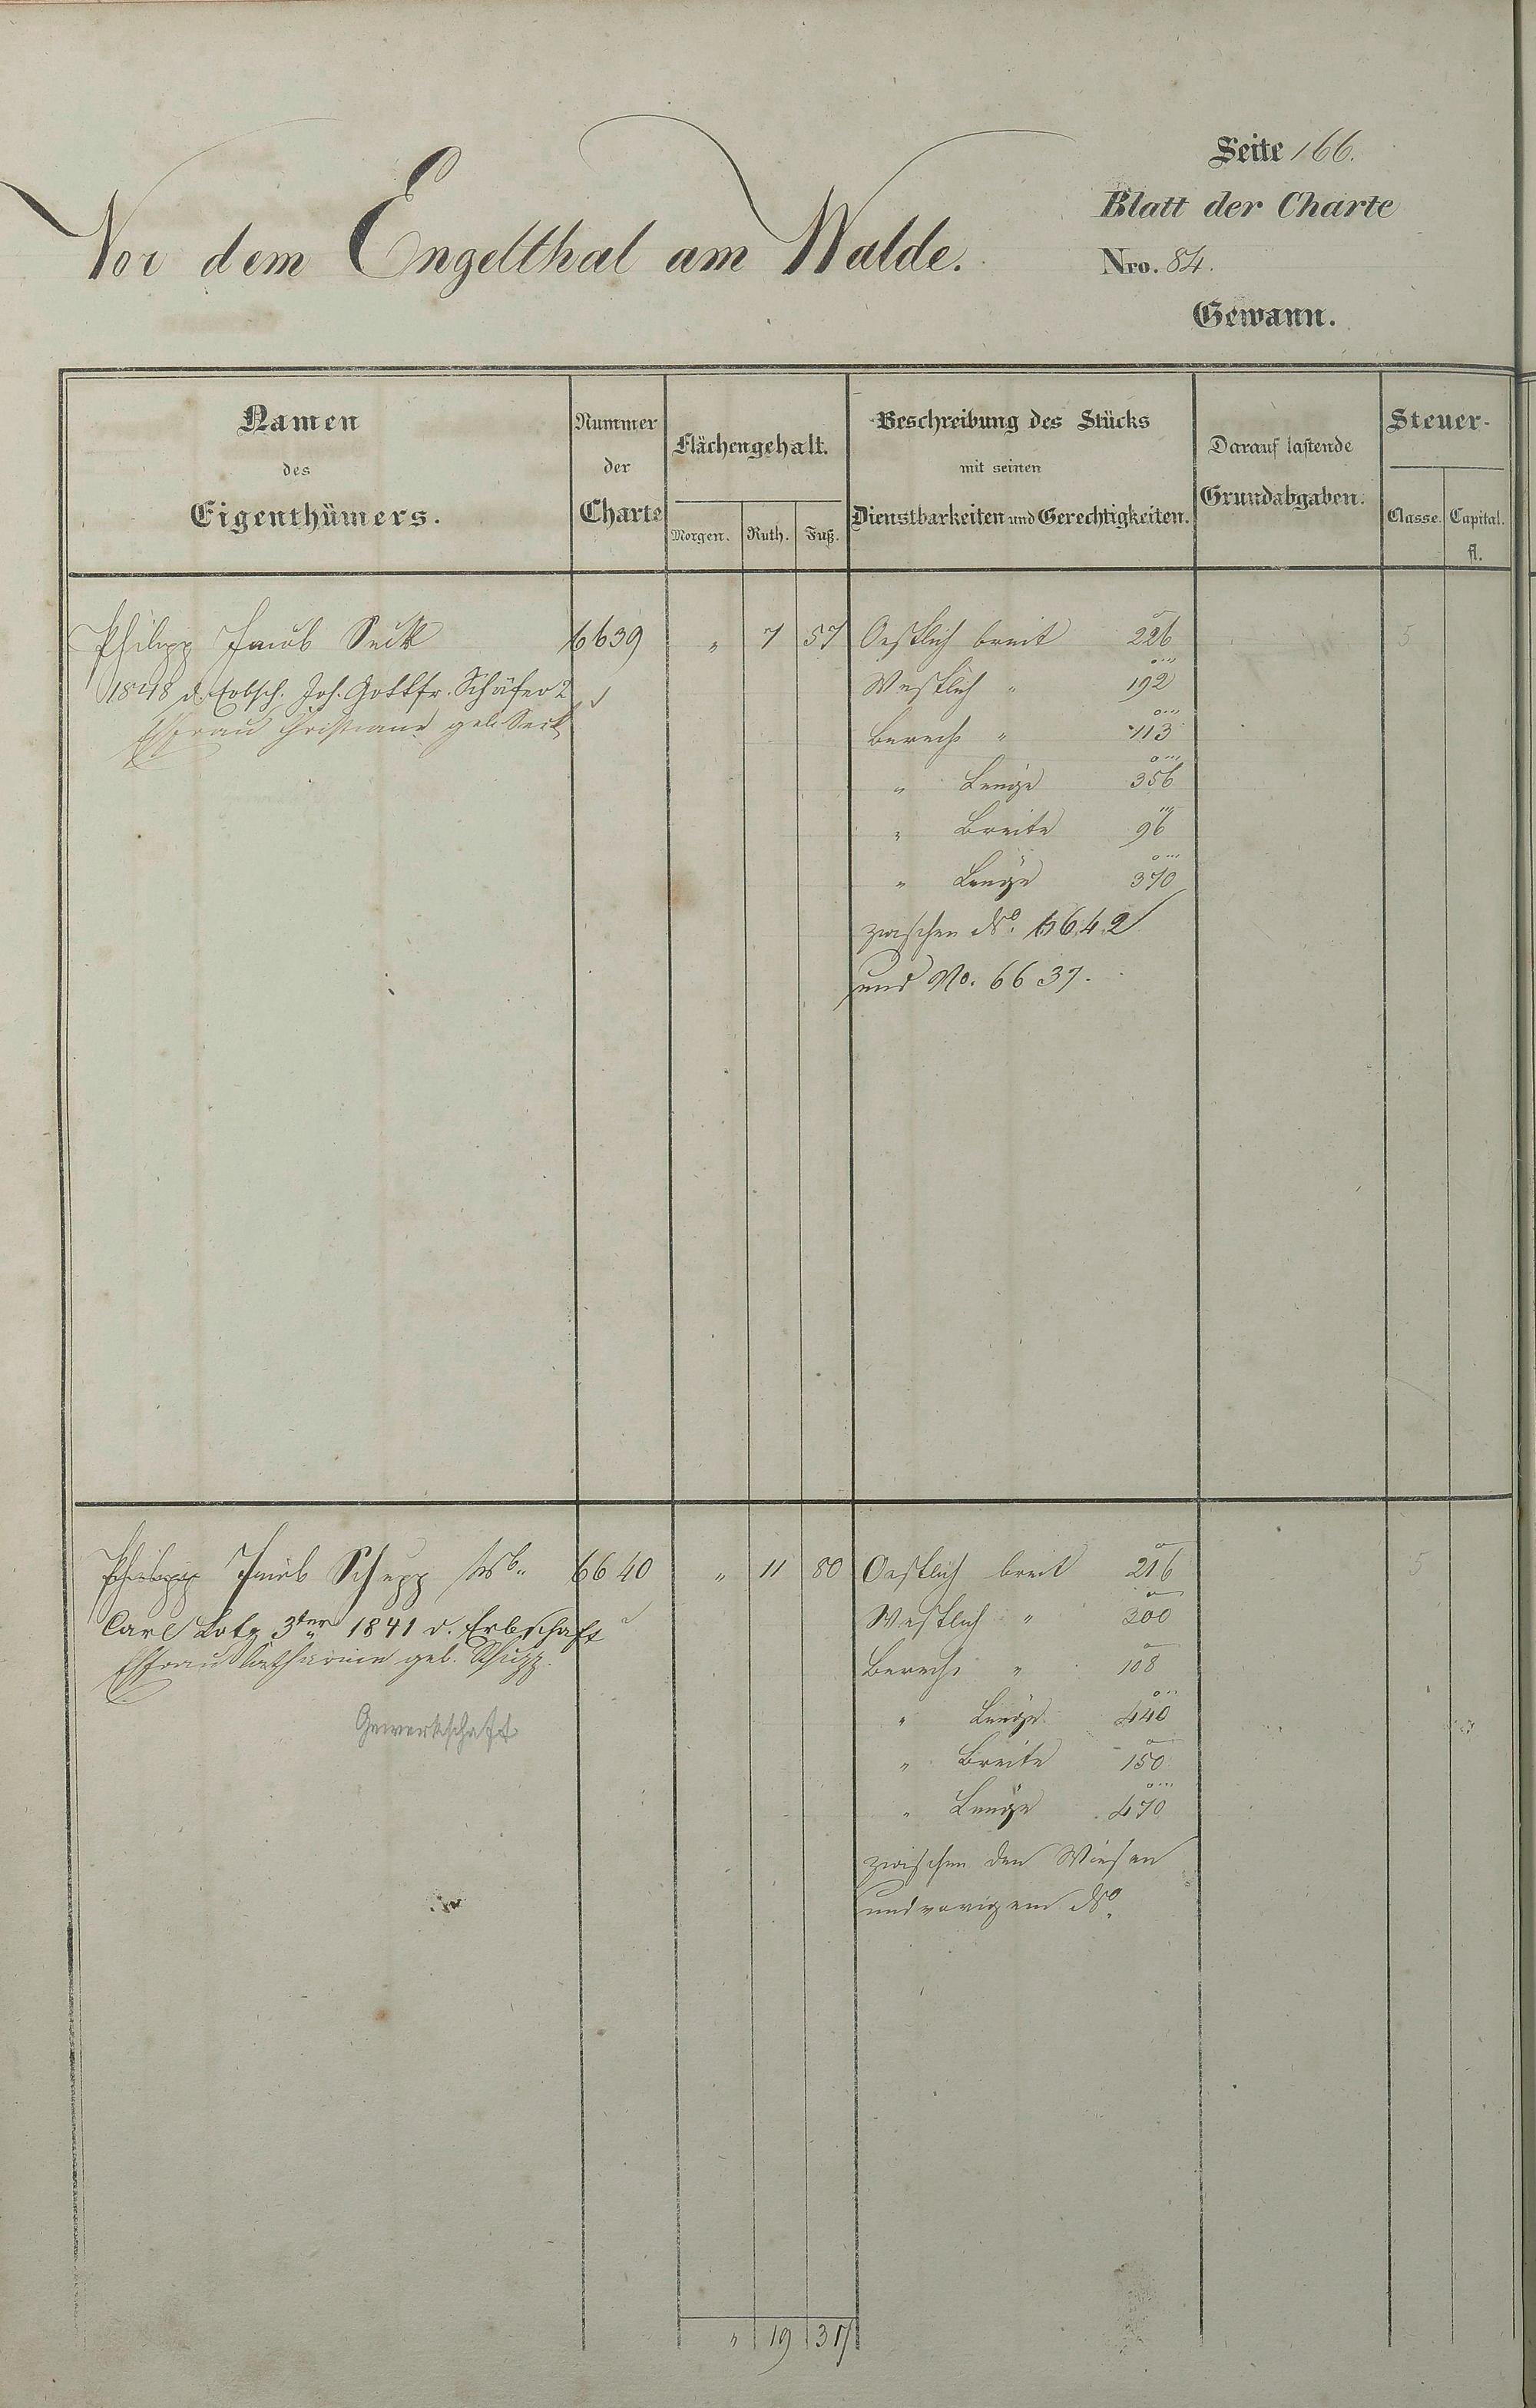 Seite 166.
Blatt der Charte
Vor dem Engelthal am Walde.
Nro. 84.
Gewann.
Namen
des
Eigenthümers.
Nummer
der
Charte
Flächengehalt.
Morgen. Ruth. Fuß.
Beschreibung des Stücks
mit seinen
Dienstbarkeiten und Gerechtigkeiten.
Darauf lastende
Grundabgaben.
Steuer-
Classe. Capital.
fl.
Philipp Jacob Seck 6639 " 7 57 Oestlich breit 226 5
1848 d. Erbsch. Joh. Gottfr. Schäfer 2 Westlich " 192
Ehfrau Christiane geb. Seck Berech " 113
" Länge 356
" Breite 96
" Länge 370
zwischen No. 6642
und No. 6637.
Philipp Jacob Schupp 6640 " 11 80 Oestlich breit 216 5
Carl Lotz 3ter 1841 d. Erbschaft Westlich " 200
Ehfrau Catharine geb. Schupp. Berech " 108
Gewerkschaft " Länge 440
" Breite 150
" Länge 470
zwischen den Wiesen
und vorigem No.
" 19 37